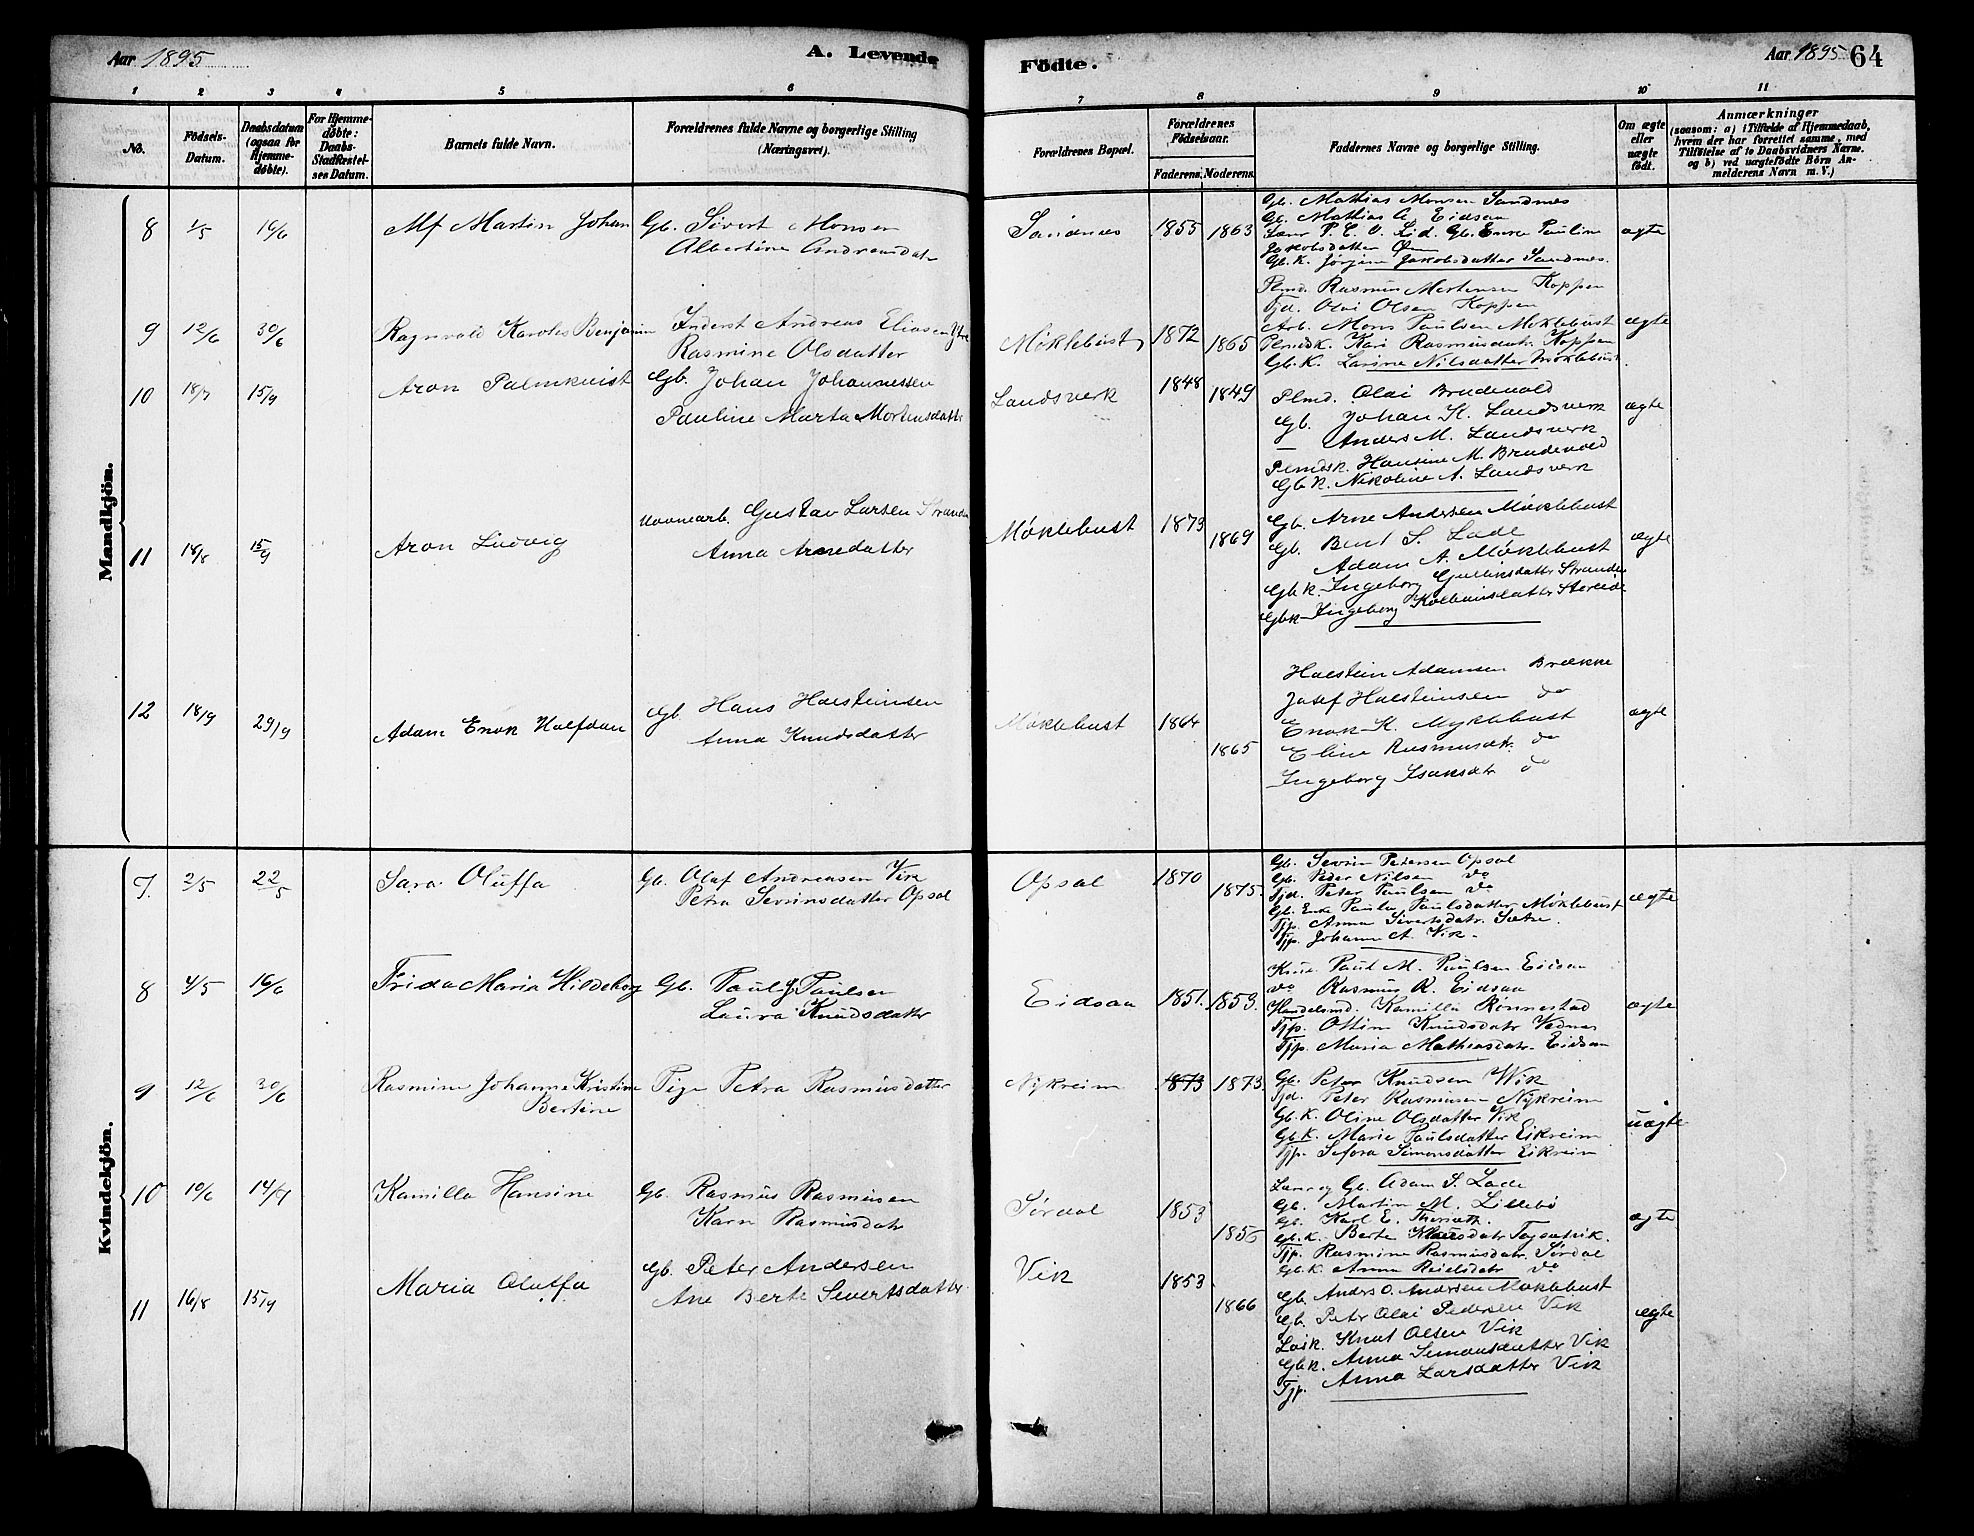 Aar 1895
A. Levende
Födte.
Aar 1895
64
1 2 3 4 5 6
7 8 9 10 11
No.
Födsels-Datum.
Daabsdatum (ogsaa for Hjemme-döbte).
For Hjemme-döbte: Daabs-Stadfæstel-ses Datum.
Barnets fulde Navn.
Forældrenes fulde Navne og borgerlige Stilling (Næringsvei).
Forældrenes Bopæl.
Forældrenes Födselsaar.
Faderens.
Moderens.
Faddernes Navne og borgerlige Stilling.
Om ægte eller uægte födt.
Anmærkninger
(saasom: a) i Tilfælde af Hjemmedaab, hvem der har forrettet samme, med Tilföielse af to Daabsvidners Navne, og b) ved uægtefödte Börn An-melderens Navn m. V.)
Mandkjön.
8 1/5 16/6 Martin Johan Gb. Sivert Monsen
Albertine Andreasdatr
Sandnes 1855 1863 ægte
Gb. Mathias Monsen Sandnes
Gb. Mathias A. Eidsaa
P. C. O. Eid. Gb. Enke Pauline
Jakobsdatter
Gb.K. Jørgine Jakobsdatter Sandnes.
9 12/6 30/6 Ragnvald Karolus Benjamin Inderst Andreas Eliasen
Rasmine Olsdatter
Møklebust 1872 1865 ægte
Plmd. Rasmus Martensen Koppen
Tjd. Olai Olsen Koppen
Arb. Mons Paulsen Møklebust
Plmdsk. Kari Rasmusdatr. Koppen
Gb.K. Larsine Nilsdatter Møklebust.
10 18/7 15/9 Aron Palmkvist Gb. Johan Johannessen
Pauline Marta Mortensdatter
Landsverk 1848 1849 ægte
Plmd. Olai Brudevold
Gb. Johan K. Landsverk
— Anders M. Landsverk
Plmdsk. Hansine M. Brudevold
Gbk. Nikoline A. Landsverk
11 18/8 15/9 Aron Ludvig Gustav Larsen Stranden
Anna Arnedatter
Møklebust 1873 1869 ægte
Gb. Arne Andersen Møklebust
Gb. Bent S. Lade
Adam A. Møklebust
Gbk. Ingeborg Gulliksdatter Stranden
Gbk. Ingeborg Kolbeinsdatter Støreide
12 18/9 29/9 Adam Enok Halfdan Gb. Hans Halsteinsen
Anna Knudsdatter
Møklebust 1864 1865 ægte
Halstein Adamsen Brække
Josef Halsteinsen do
Enok K. Myklebust
Eline Rasmusdtr. do
Ingeborg Isaksdtr do
Kvindekjön.
7. 2/5 22/5 Sara Oluffa Gb. Olaf Andreasen Vik
Petra Sevrinsdatter Opsal
Opsal 1870 1875. ægte
Gb. Sevrin Petersen Opsal
Gb. Peder Nilsen do
Tjd. Peter Paulsen do
Gb. Enke Paula Paulsdatter Møklebust
Tjp. Anna Sivertsdatr. Sætre.
Tjp. Johanne A. Vik.
8 4/5 16/6 Frida Maria Hildeborg Gb. Paul J. Paulsen
Laura Knudsdatter
Eidsaa 1851. 1853. ægte
Paul M. Paulsen Eidsaa
do Rasmus R. Eidsaa
Handelsmd. Kamilla Rønnestad
Tjp. Ottine Knudsdatr Vednes
Tjp. Maria Mathiasdatr. Eidsaa
9 12/6 30/6 Rasmine Johanne Kristine
Bertine
Pige Petra Rasmusdatter
Nykreim 1873 1873. uægte
Gb. Peter Knudsen Wik
Tjd. Peter Rasmusen Nykreim
Gb.K. Oline Olsdatter Vik
Gb.K. Marie Paulsdatter Eikreim
Tjp. Sefora Simonsdatter Eikreim
10 10/6 14/7 Kamilla Hansine Gb. Rasmus Rasmusen
Karn Rasmusdatr
Sørdal 1853 1856 ægte
Lærer og Gb. Adam S. Lade
Gb. Martin M. Lillebø
Gb. Karl E.
Gb.K. Berte
Tjp. Rasmine Rasmusdatr. Sørdal
Gb.K. Anna do
11 16/8 15/9 Maria Oluffa Gb. Peter Andersen
Ane Berte Severtsdatter
Vik 1853 1866 ægte
Gb. Anders O. Andersen Møklebust
Gb. Peter Olai Pedersen Vik
Løsk. Knut Olsen Vik
Gbk. Anna Simonsdatter Vik
Tjp. Anna Larsdatter Vik